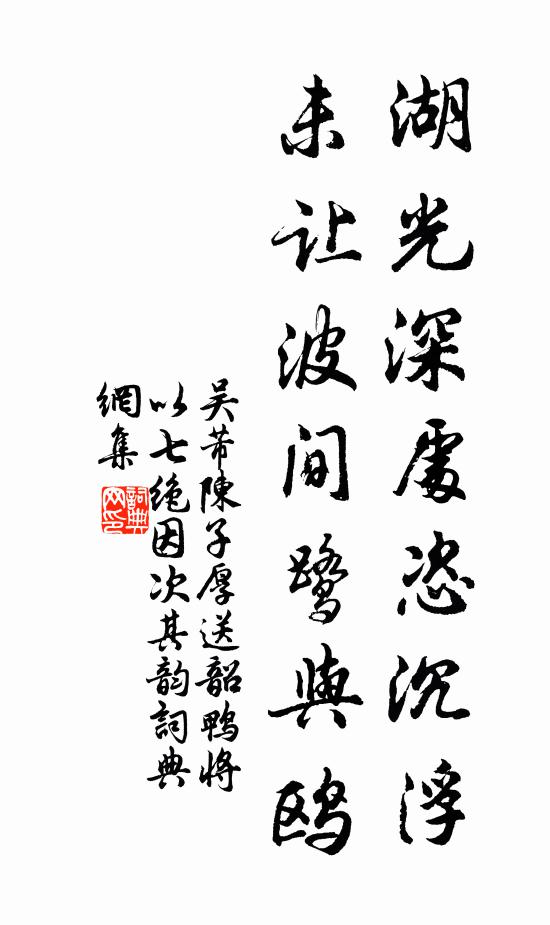 湖光深處恣沉浮
未让波间鹭與鸥
吴芾陳子厚送韶鸭将
以七绝因次其韵詞典
網集
詞典网印